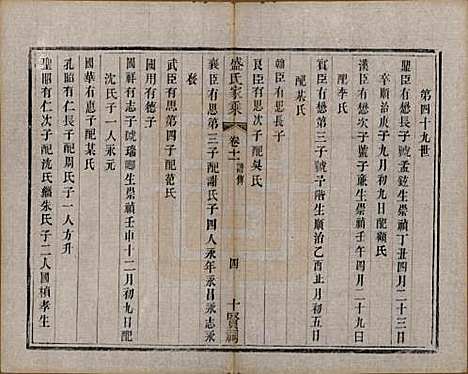 第四十九世
聖臣有懋長子號孟鉉生崇禎丁丑四月二十三日
辛順治庚子九月初九日配顧氏
漢臣有懋次子號子廉生崇禎壬午四月二十九日
配李氏
賓臣有懋第三子生順治乙酉正月初五日
配某氏
翰臣有思長子
良臣有思次子配吳氏
盛氏家乘
卷十一
譜傳
四
十賢祠
襄臣有思第三子配謝氏子四人永年永昌永志永
餘
武臣有思第四子配范氏
國用有德子
國祥有志子號瑞卿生崇禎壬申十二月初九日配
沈氏子一人永元
國華有惠子配某氏
孔昭有仁長子配周氏子一人方升
聖昭有仁次子配沈氏繼朱氏子二人國楨孝生